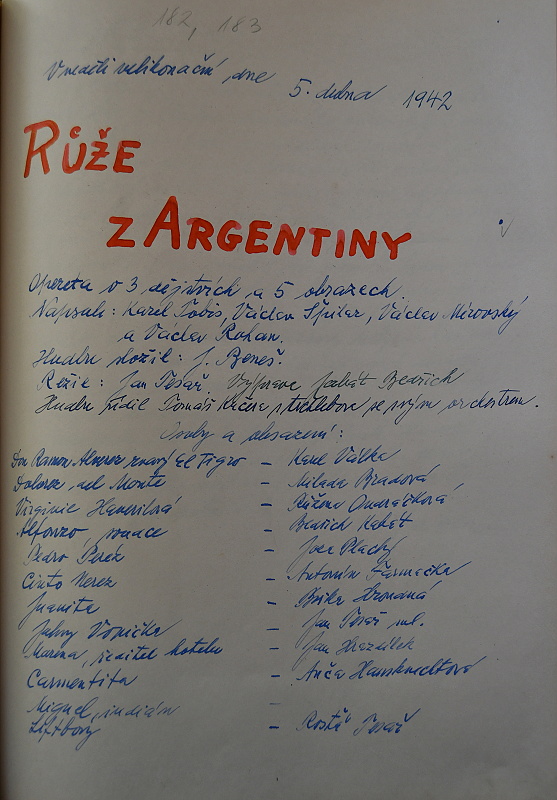 182, 183
V neděli velikonoční, dne
5. dubna 1942
RŮŽE
Z ARGENTINY
Opereta o 3 dějstvích a 5 obrazech.
Napsali: Karel Tobis, Václav Špilar, Václav Mírovský
a Václav Rohan.
Hudbu složil: J. Bereš.
Režie: Jan Tesař. Výprava Bedřich
Hudbu řídil Tomáš se svým orchestrem.
Osoby a obsazení:
Don Ramon Alvarez, zvaný El Tigro - Karel Válka
Dolores, del Monte - Milada Bradová
Virginie - Růžena Ondráčková
Alfonzo, - Bedřich
Pedro Perez - Josef Plachý
Cinto Nerez - Antonín
Juanita - Hromaná
Johny Vonička - Jan Tesař ml.
Marena, ředitel hotelu - Jan
Carmentita - Anča Hausknechtová
Miguel, indián -
Liftboy - Rosťa Tesař